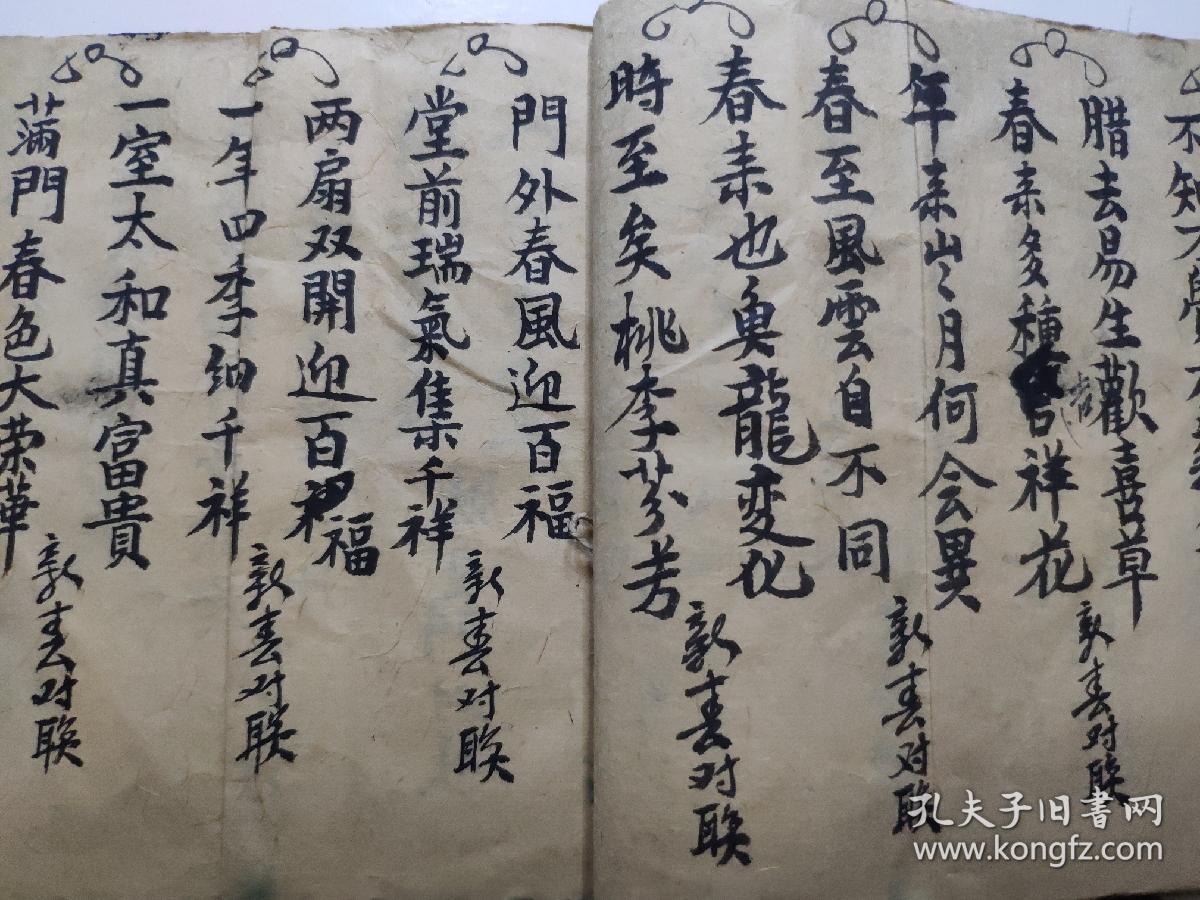 不知
腊去易生歡喜草
春来多種吉祥花
新春对联
年来山々月何会異
春至風雲自不同
新春对联
春来也魚龍变化
時至矣桃李芬芳
新春对联
門外春風迎百福
堂前瑞氣集千祥
新春对联
两扇双開迎百福
一年四季细千祥
新春对联
一室太和真富貴
滿門春色大荣華
新春对联
孔夫子旧书网
www.kongfz.com